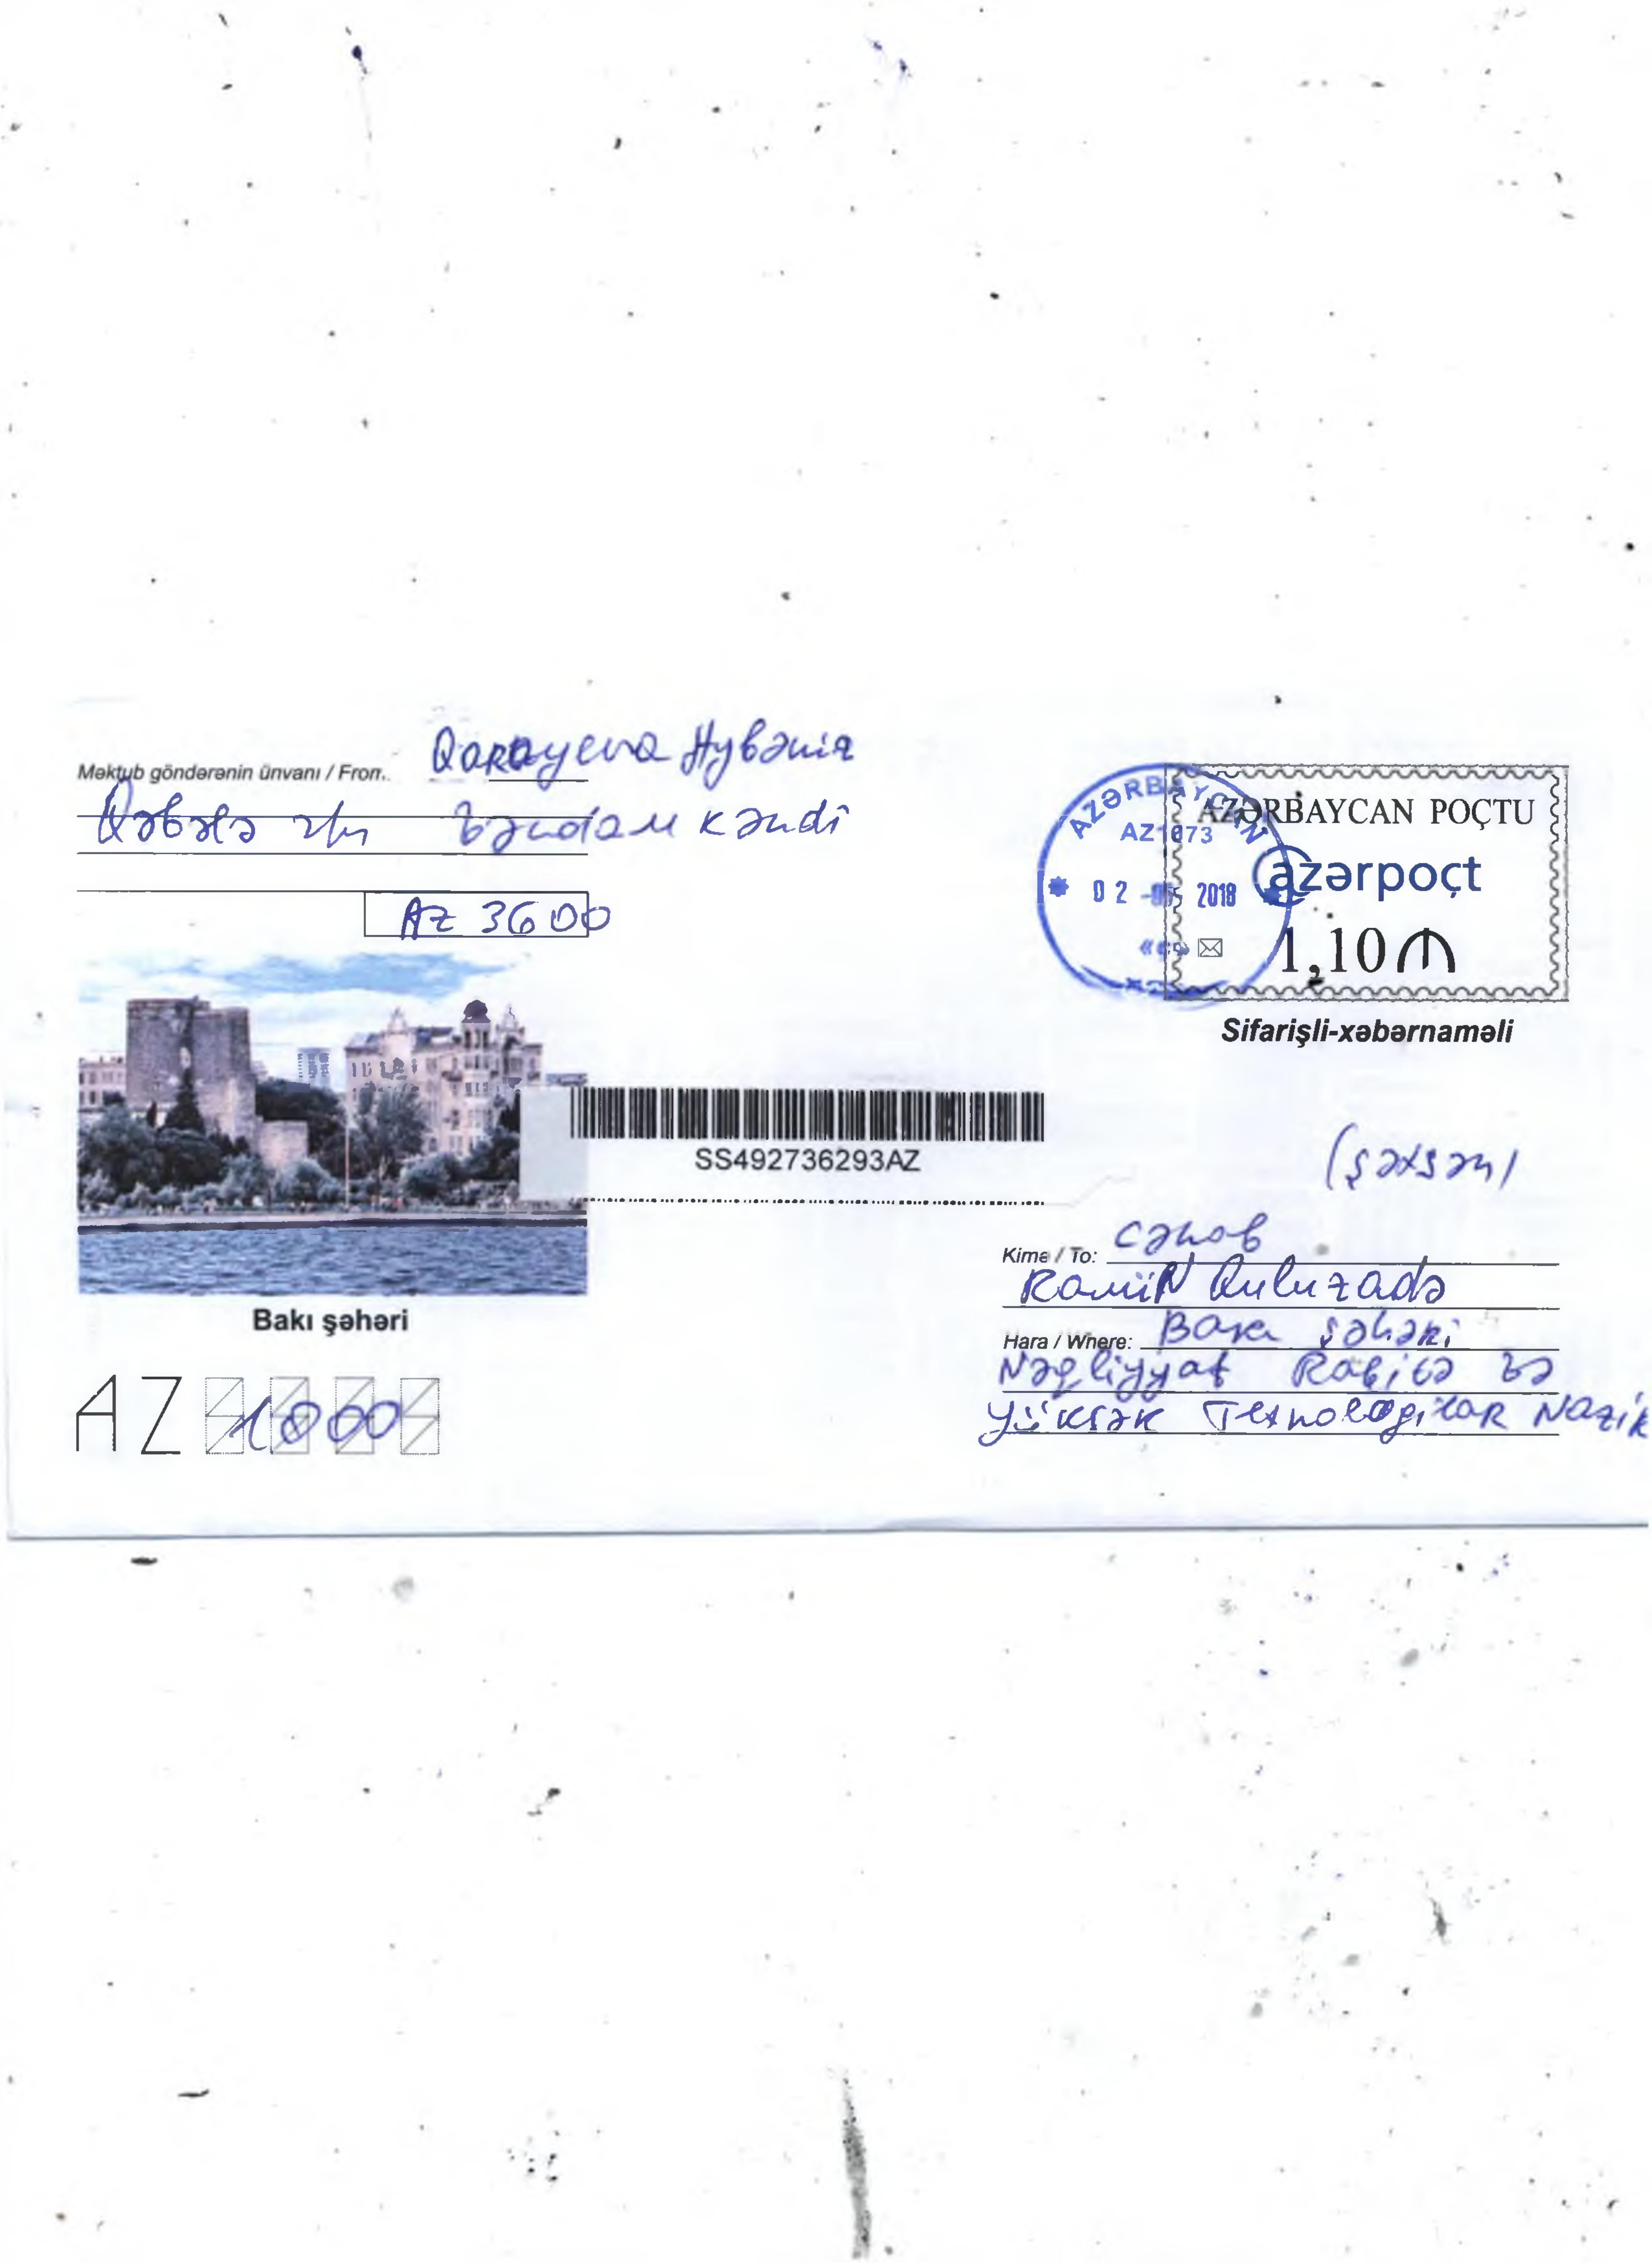 Məktub göndərənin ünvanı / From:
Qarayeva
Qəbələ Bəndam kəndi
AZ 3600
AZƏRBAYCAN
AZ1073
02 2018
AZƏRBAYCAN POÇTU
azərpoçt
1,10 ₼
Sifarişli-xəbərnaməli
SS492736293AZ
(şəxsən)
Kimə / To: Cənab
Ramin Quluzadə
Hara / Where: Bakı şəhəri
Nəqliyyat Rabitə və
Yüksək Texnologiyalar Nazik
Bakı şəhəri
AZ 1000